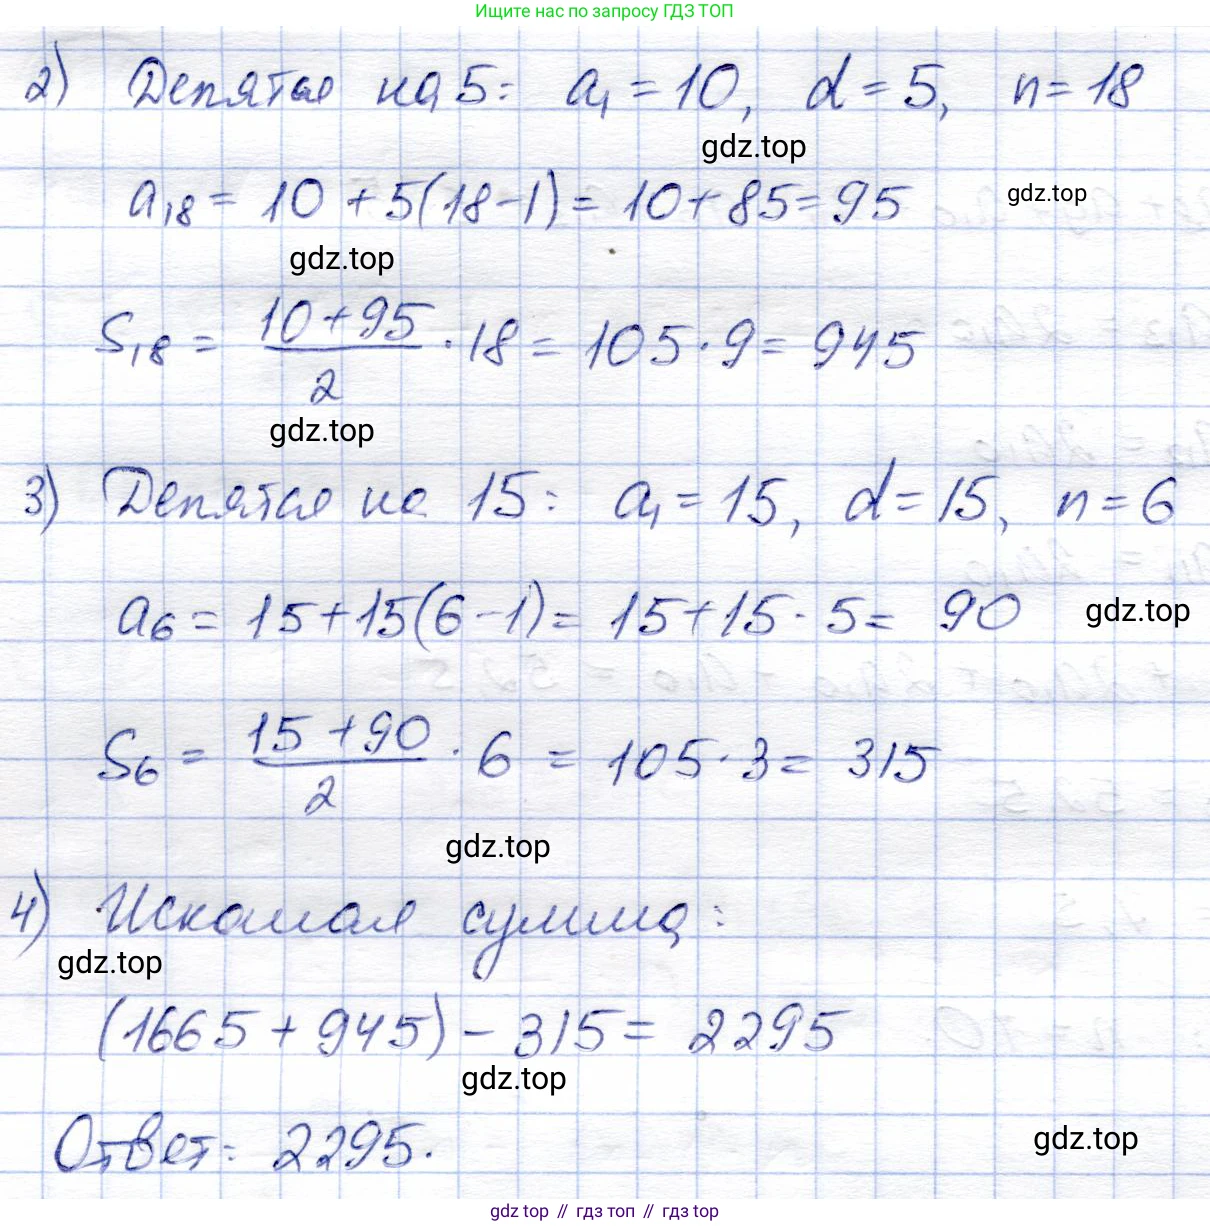 Ищите нас по запросу ГДЗ ТОП
2) Делятся на 5: a₁ = 10, d = 5, n = 18
gdz.top
a₁₈ = 10 + 5(18-1) = 10 + 85 = 95
gdz.top
gdz.top
S₁₈ = (10+95)/2 · 18 = 105 · 9 = 945
gdz.top
3) Делятся на 15: a₁ = 15, d = 15, n = 6
a₆ = 15 + 15(6-1) = 15 + 15 · 5 = 90
gdz.top
S₆ = (15+90)/2 · 6 = 105 · 3 = 315
gdz.top
4) Искомая сумма:
gdz.top
(1665 + 945) - 315 = 2295
gdz.top
Ответ: 2295.
gdz.top
gdz top // гдз топ // gdz top